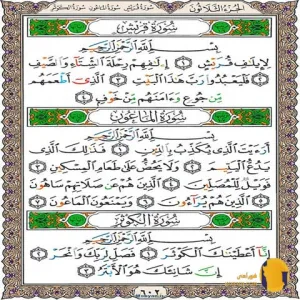 الجزء الثلاثون
سورة قريش
بِسْمِ اللَّهِ الرَّحْمَٰنِ الرَّحِيمِ
لِإِيلَافِ قُرَيْشٍ ۝١ إِيلَافِهِمْ رِحْلَةَ الشِّتَاءِ وَالصَّيْفِ
۝٢ فَلْيَعْبُدُوا رَبَّ هَٰذَا الْبَيْتِ ۝٣ الَّذِي أَطْعَمَهُم
مِّن جُوعٍ وَآمَنَهُم مِّنْ خَوْفٍ ۝٤
سورة الماعون
بِسْمِ اللَّهِ الرَّحْمَٰنِ الرَّحِيمِ
أَرَأَيْتَ الَّذِي يُكَذِّبُ بِالدِّينِ ۝١ فَذَٰلِكَ الَّذِي
يَدُعُّ الْيَتِيمَ ۝٢ وَلَا يَحُضُّ عَلَىٰ طَعَامِ الْمِسْكِينِ ۝٣
فَوَيْلٌ لِّلْمُصَلِّينَ ۝٤ الَّذِينَ هُمْ عَن صَلَاتِهِمْ سَاهُونَ
۝٥ الَّذِينَ هُمْ يُرَاءُونَ ۝٦ وَيَمْنَعُونَ الْمَاعُونَ ۝٧
سورة الكوثر
بِسْمِ اللَّهِ الرَّحْمَٰنِ الرَّحِيمِ
إِنَّا أَعْطَيْنَاكَ الْكَوْثَرَ ۝١ فَصَلِّ لِرَبِّكَ وَانْحَرْ
۝٢ إِنَّ شَانِئَكَ هُوَ الْأَبْتَرُ ۝٣
٦٠٢